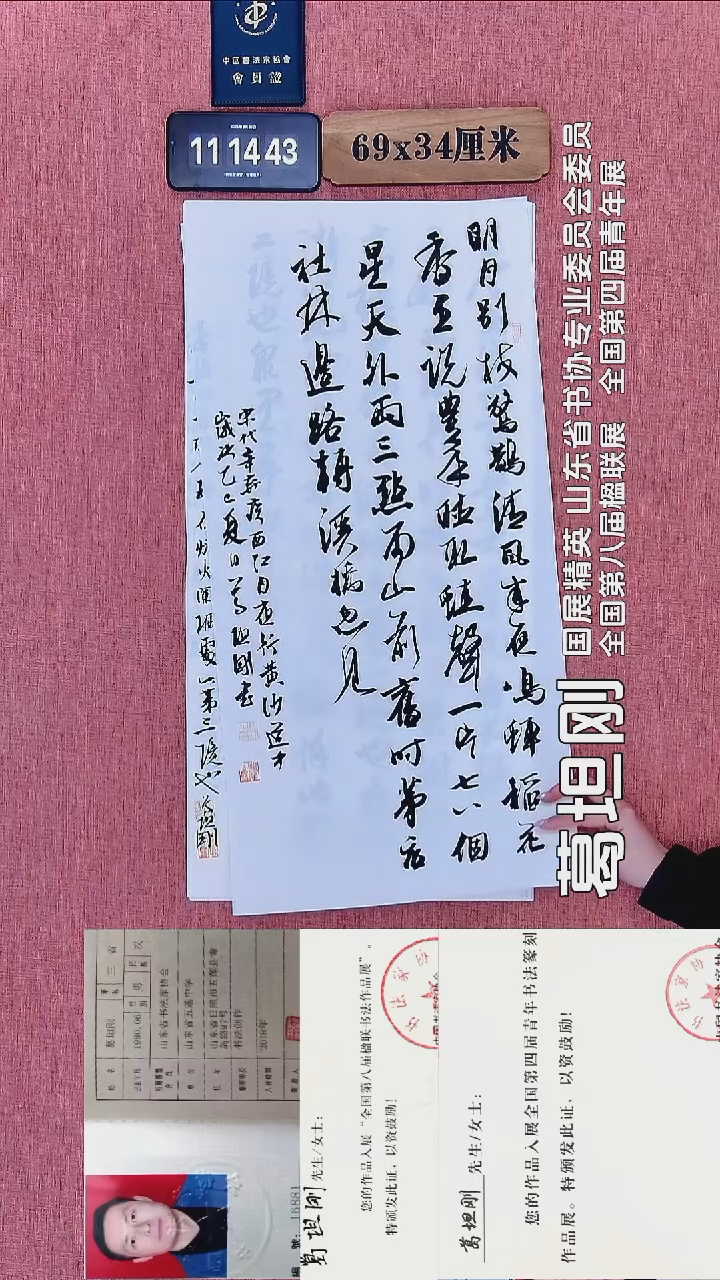 中国書法家協會
會員證
11 14 43
69x34厘米
明月别枝驚鵲清風半夜鳴蟬稻花
香里说豐年聽取蛙聲一片七八個
星天外兩三點雨山前舊时茅店
社林邊路轉溪橋忽見
宋代辛弃疾西江月夜行黄沙道中
歲次乙巳夏日葛坦剛書
葛坦刚
国展精英 山东省书协专业委员会委员
全国第八届楹联展 全国第四届青年展
姓名 葛坦刚
1980.06 性别 男 民族 汉
山东省书法家协会
山东省五莲中学
山东省日照市五莲县青
书法创作
2018年
編號: 16881
葛坦刚 先生/女士:
您的作品入展“全国第八届楹联书法作品展”。
特颁发此证，以资鼓励！
葛坦刚 先生/女士:
您的作品入展全国第四届青年书法篆刻
作品展。特颁发此证，以资鼓励！